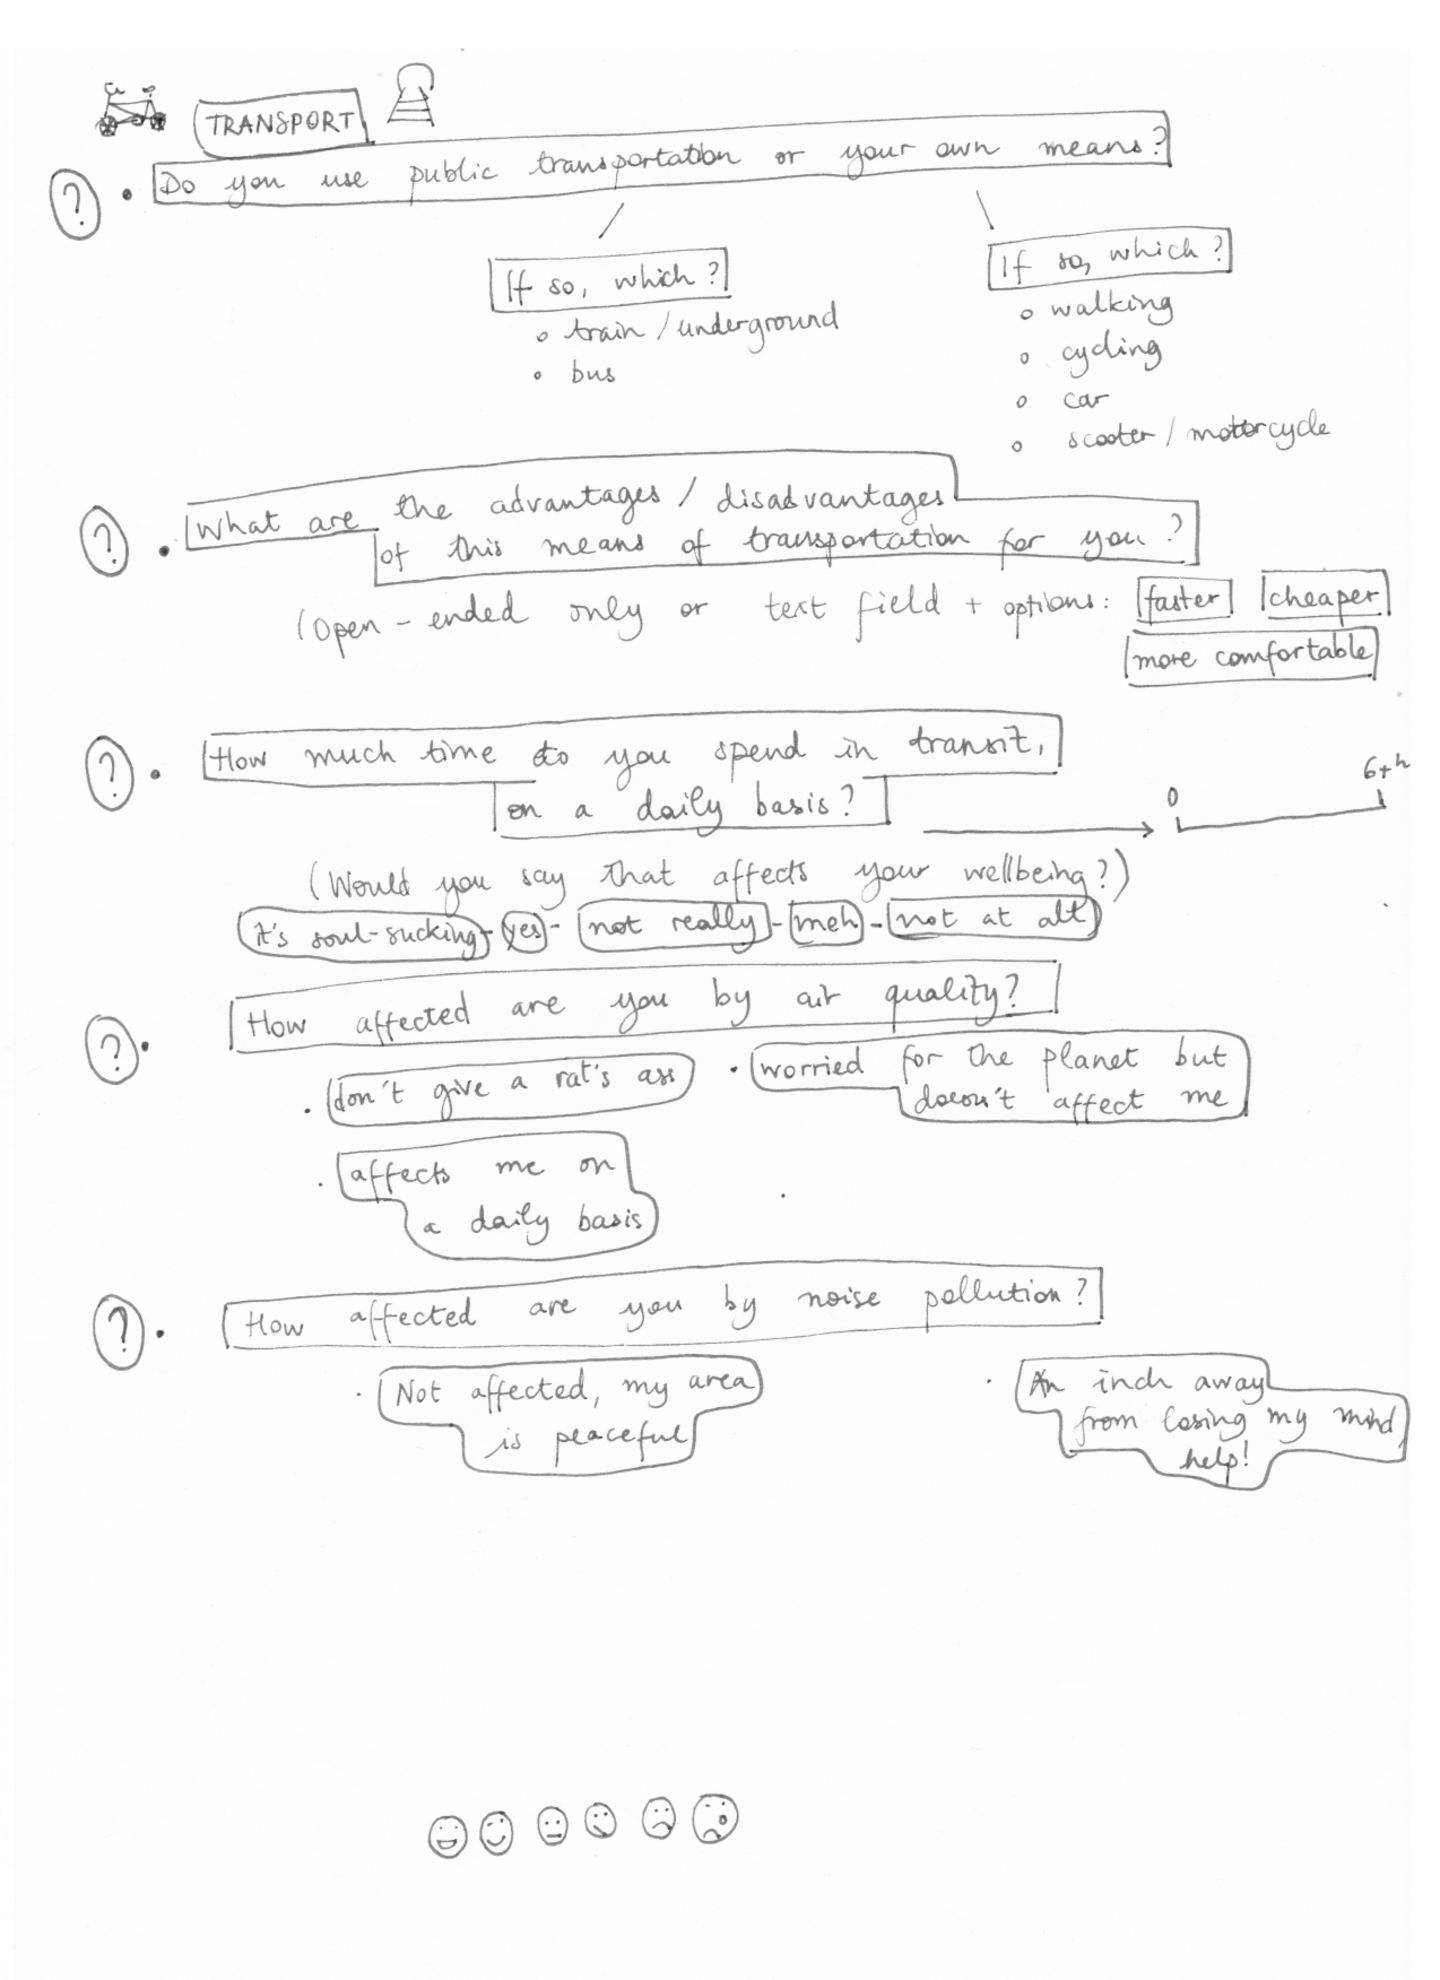 TRANSPORT
? • Do you use public transportation or your own means?
If so, which?
o train / underground
o bus
If so, which?
o walking
o cycling
o car
o scooter / motorcycle
? • What are the advantages / disadvantages
of this means of transportation for you?
(Open-ended only or text field + options: faster cheaper
more comfortable
? • How much time do you spend in transit,
on a daily basis?
0 6+h
(Would you say that affects your wellbeing?)
it's soul-sucking - yes - not really - meh - not at all
? • How affected are you by air quality?
• don't give a rat's ass
• worried for the planet but
doesn't affect me
• affects me on
a daily basis
? • How affected are you by noise pollution?
• Not affected, my area
is peaceful
• An inch away
from losing my mind,
help!